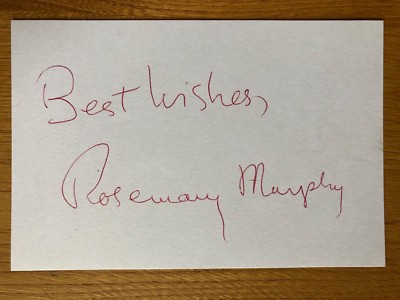 Best Wishes,
Rosemary Murphy